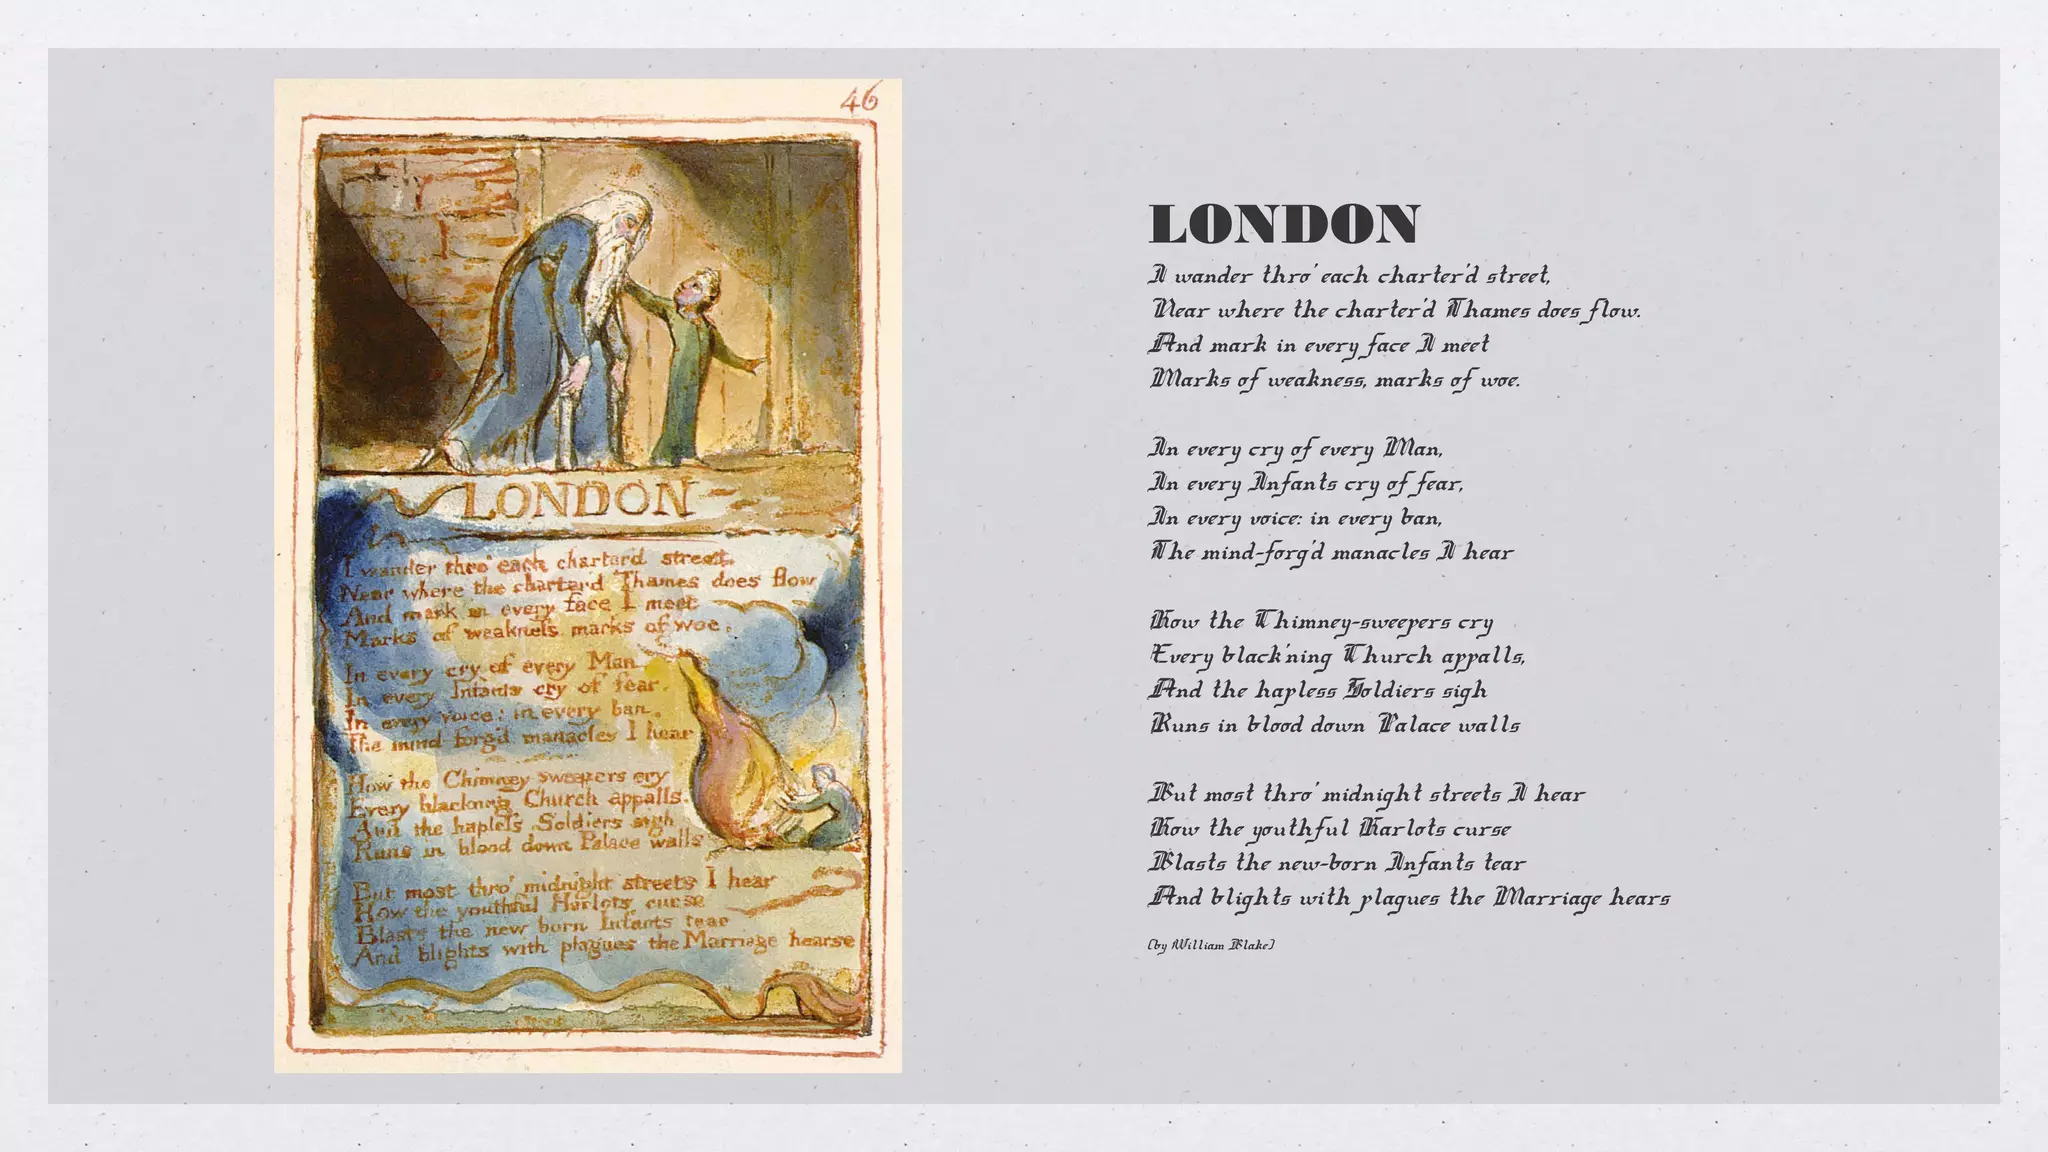 46
LONDON
I wander thro' each charter'd street,
Near where the charter'd Thames does flow
And mark in every face I meet
Marks of weakness, marks of woe.
In every cry of every Man,
In every Infants cry of fear,
In every voice: in every ban,
The mind-forg'd manacles I hear
How the Chimney-sweepers cry
Every blackning Church appalls,
And the hapless Soldiers sigh
Runs in blood down Palace walls
But most thro' midnight streets I hear
How the youthful Harlots curse
Blasts the new born Infants tear
And blights with plagues the Marriage hearse
LONDON
I wander thro' each charter'd street,
Near where the charter'd Thames does flow.
And mark in every face I meet
Marks of weakness, marks of woe.
In every cry of every Man,
In every Infants cry of fear,
In every voice: in every ban,
The mind-forg'd manacles I hear
How the Chimney-sweepers cry
Every black'ning Church appalls,
And the hapless Soldiers sigh
Runs in blood down Palace walls
But most thro' midnight streets I hear
How the youthful Harlots curse
Blasts the new-born Infants tear
And blights with plagues the Marriage hears
(by William Blake)